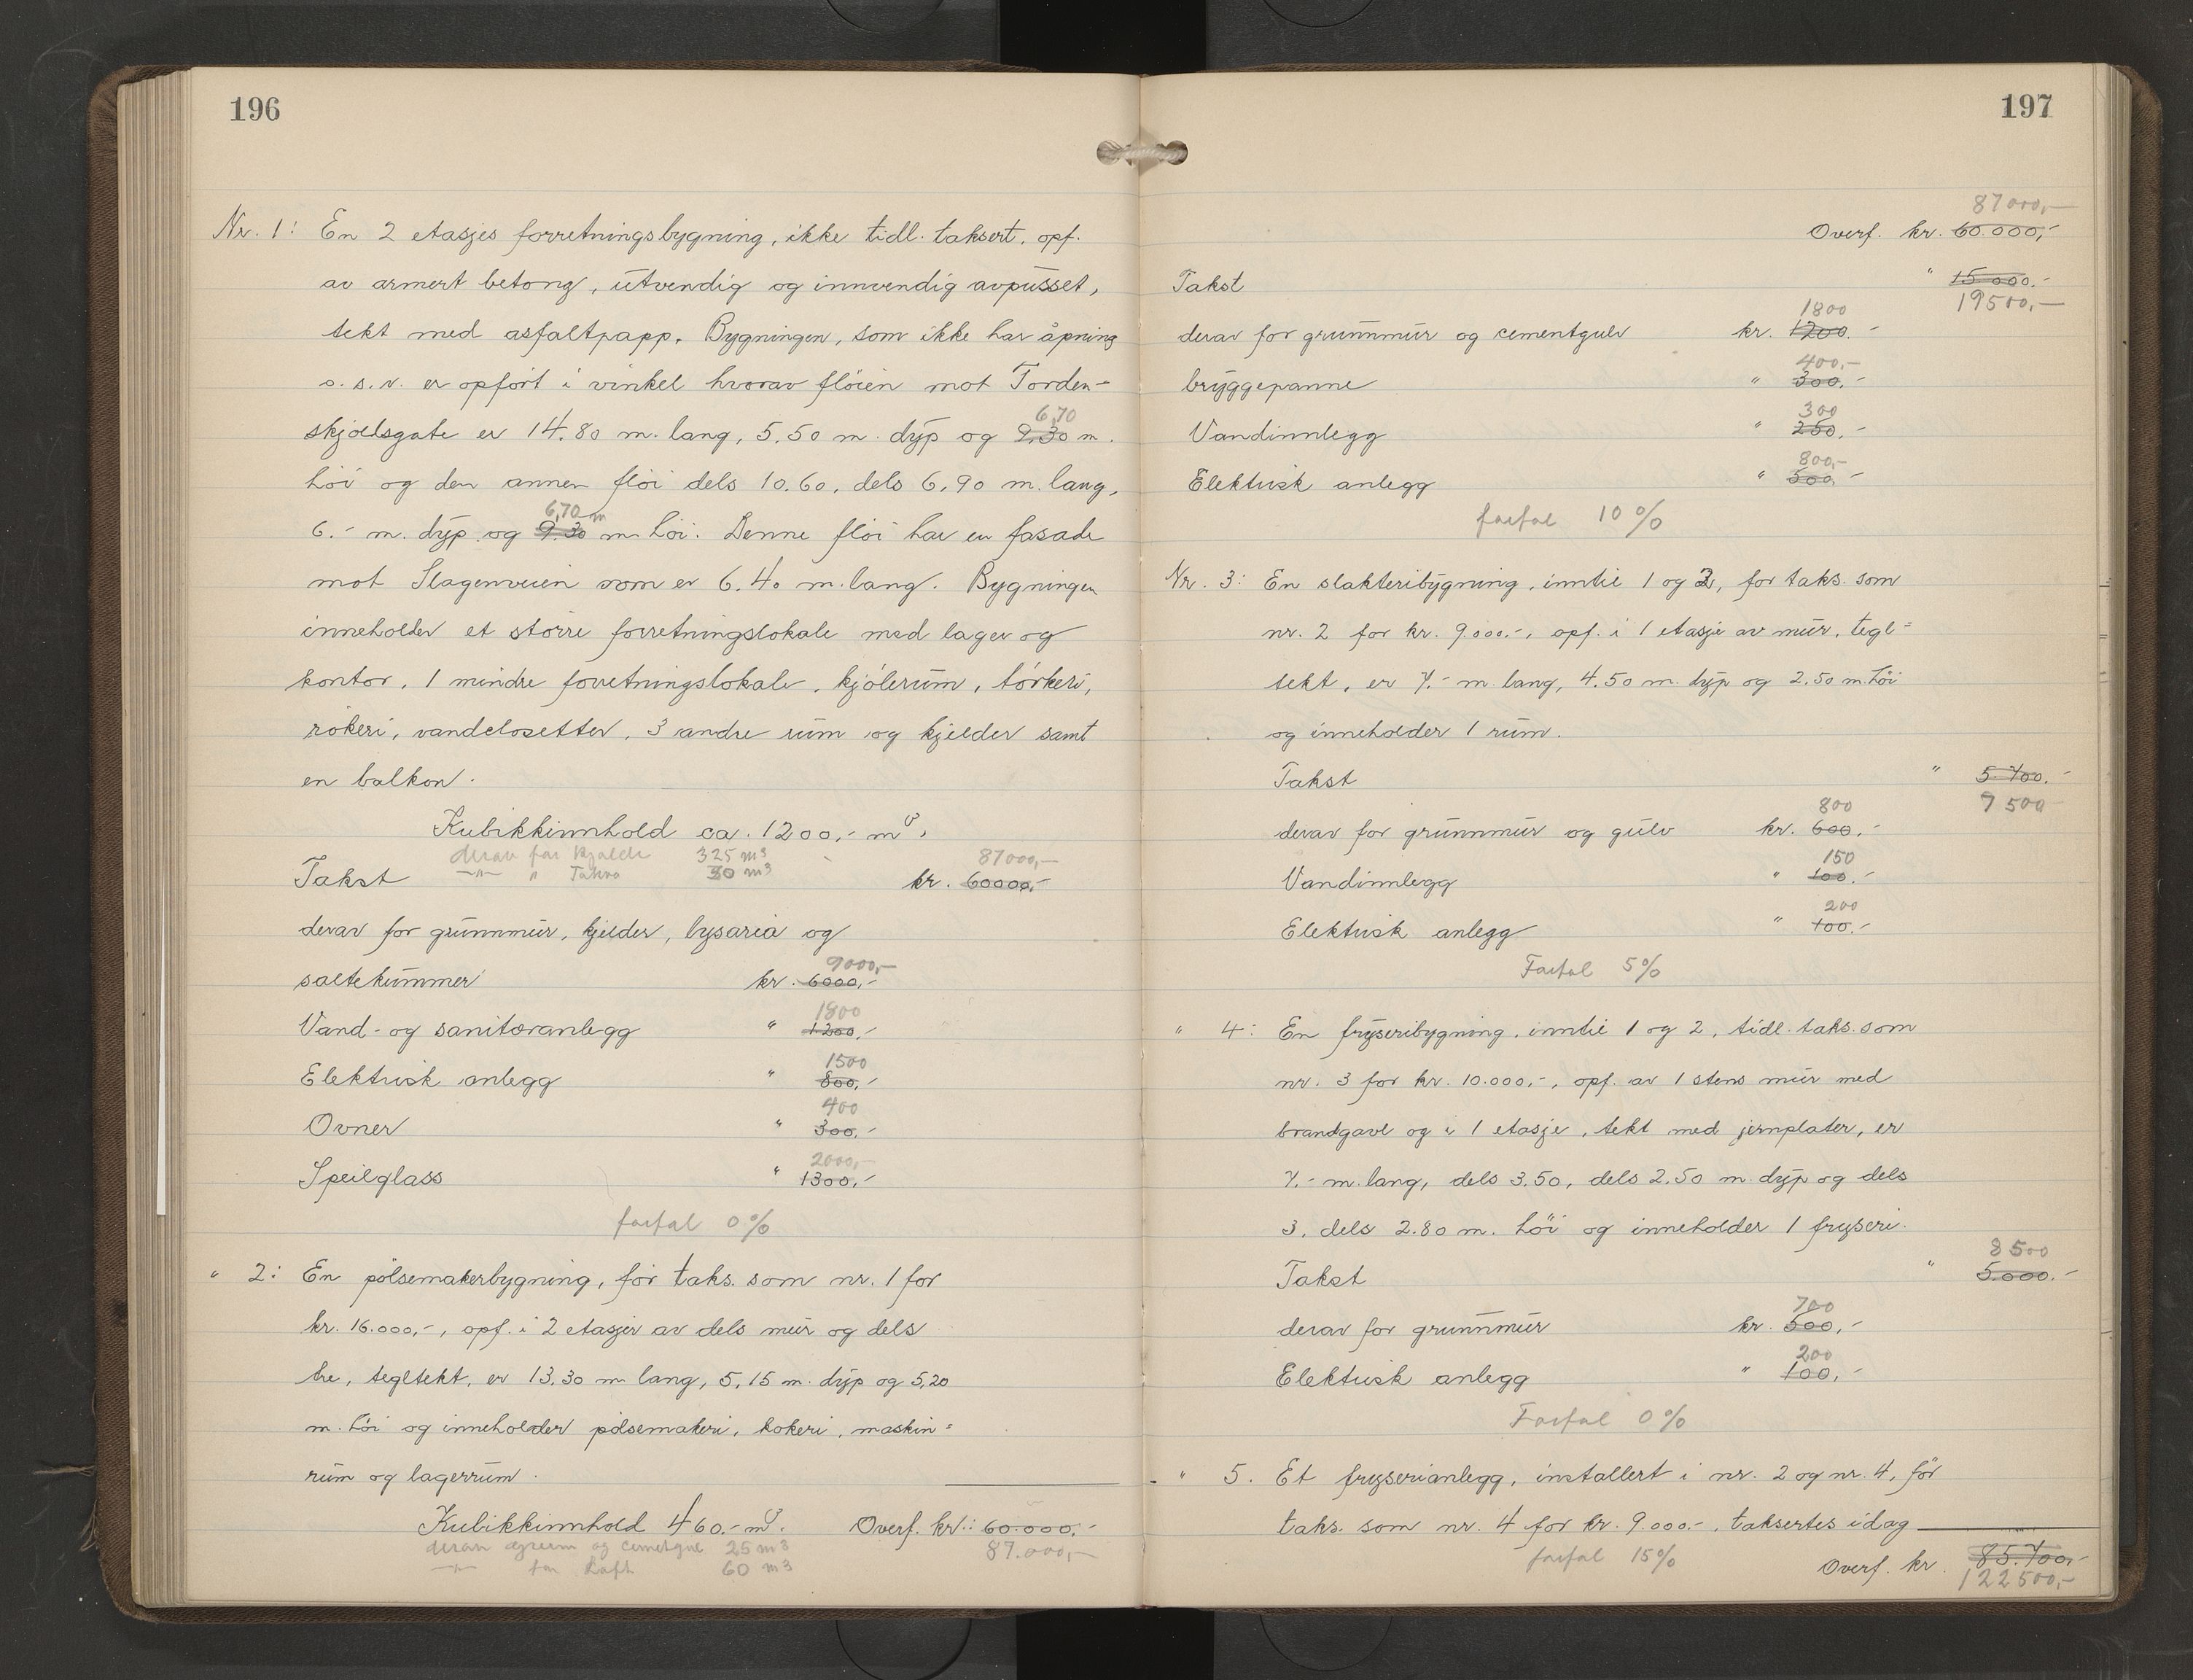 196
Nr. 1: En 2 etasjes forretningsbygning, ikke tidl. taksert, opf.
av armert betong, utvendig og innvendig avpusset,
tekt med asfaltpapp. Bygningen, som ikke har åpning
o.s.v. er opført i vinkel hvorav fløien mot Torden-
6,70
skjoldsgate er 14.80 m. lang, 5.50 m. dyp og 9.30 m.
høi og den annen fløi dels 10.60, dels 6.90 m. lang,
6,70 m
6.- m. dyp og 9.30 m høi. Denne fløi har en fasade
mot Slagenveien som er 6.40 m. lang. Bygningen
inneholder et større forretningslokale med lager og
kontor, 1 mindre forretningslokale, kjølerum, tørkeri,
røkeri, vandclosetter, 3 andre rum og kjelder samt
en balkon.
Kubikkinnhold ca. 1200,- m3.
derav for kjelder 325 m3
-"- " Takro 30 m3
87000,-
Takst kr. 60000,-
derav for grunnmur, kjelder, lysaria og
9000,-
saltekummer kr. 6000,-
1800
Vand- og sanitæranlegg " 1200,-
1500
Elektrisk anlegg " 800,-
400
Ovner " 300,-
2000,-
Speilglass " 1300,-
forfal 0%
" 2: En pølsemakerbygning, før taks. som nr. 1 for
kr. 16.000,-, opf. i 2 etasjer av dels mur og dels
tre, tegltekt, er 13.30 m lang, 5,15 m. dyp og 5,20
m. høi og inneholder pølsemakeri, kokeri, maskin=
rum og lagerrum.
Kubikkinnhold 460.- m3. Overf. kr.: 60.000,-
derav og cementgulv 25 m3 87.000,-
-"- for Loft 60 m3
197
87000,-
Overf. kr. 60.000,-
Takst " 15000.-
19500,-
1800
derav for grunnmur og cementgulv kr. 1200.-
400,-
bryggepanne " 300.-
300
Vandinnlegg " 250.-
800,-
Elektrisk anlegg " 500,-
forfal 10%
Nr. 3: En slakteribygning, inntil 1 og 2, før taks. som
nr. 2 for kr. 9.000.-, opf. i 1 etasje av mur, tegl=
tekt, er 7.- m. lang, 4.50 m. dyp og 2.50 m. høi
og inneholder 1 rum.
Takst " 5.700.-
7500
800
derav for grunnmur og gulv kr. 600.-
150
Vandinnlegg " 100.-
200
Elektrisk anlegg " 100.-
Forfal 5%
" 4: En fryseribygning, inntil 1 og 2, tidl. taks. som
nr. 3 for kr. 10.000,-, opf. av 1 stens mur med
brandgavl og i 1 etasje, tekt med jernplater, er
7.- m. lang, dels 3.50, dels 2.50 m. dyp og dels
3, dels 2.80 m. høi og inneholder 1 fryseri.
8500
Takst " 5.000.-
700
derav for grunnmur kr. 500,-
200
Elektrisk anlegg " 100,-
Forfal 0%
" 5. Et fryserianlegg, installert i nr. 2 og nr. 4, før
taks. som nr. 4 for kr. 9.000.-, taksertes idag
forfal 15% Overf. kr. 85.700,-
122500,-